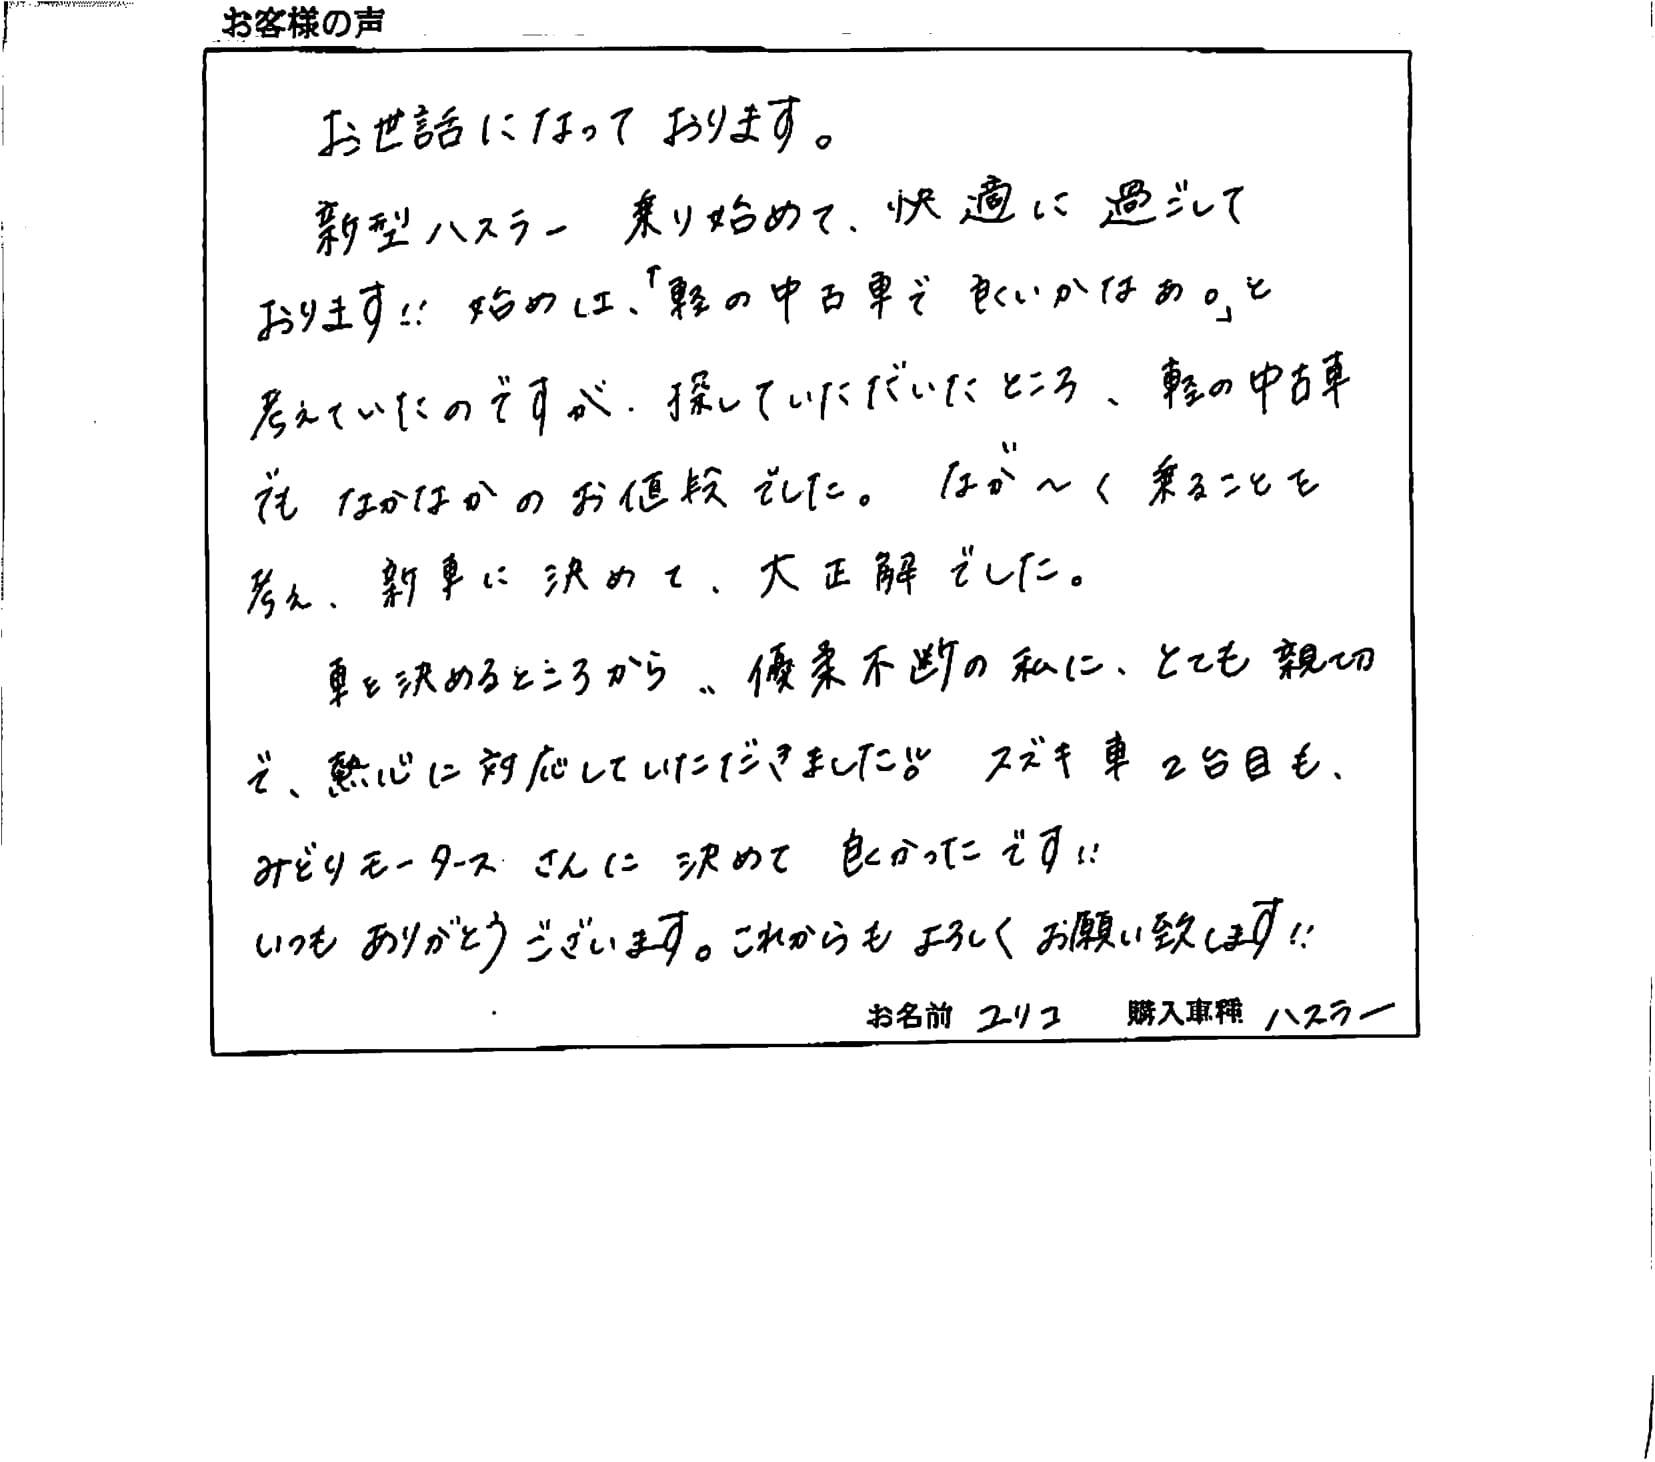 お客様の声
お世話になっております。
新型ハスラー 乗り始めて、快適に過ごして
おります!! 始めは、「軽の中古車で良くいかなぁ。」と
考えていたのですが、探していただいたところ、軽の中古車
でもなかなかのお値段でした。なが〜く乗ることを
考え、新車に決めて、大正解でした。
車を決めるところから、優柔不断の私に、とても親切
で、熱心に対応していただきました!! スズキ車2台目も、
みどりモータースさんに決めて良くかったです!!
いつもありがとうございます。これからもよろしくお願い致します!!
お名前 ユリコ 購入車種 ハスラー